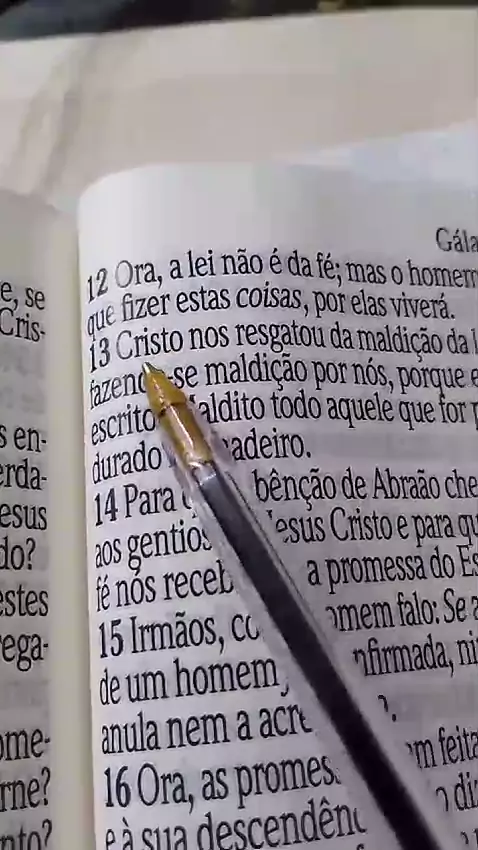 e, se
Cris-
s en-
erda-
esus
do?
estes
ega-
ome-
rne?
nto?
Gála
12 Ora, a lei não é da fé; mas o homem
que fizer estas coisas, por elas viverá.
13 Cristo nos resgatou da maldição da l
fazend -se maldição por nós, porque e
escrito aldito todo aquele que for p
durado adeiro.
14 Para bênção de Abraão che
aos gentios Jesus Cristo e para qu
fé nós receb a promessa do Es
15 Irmãos, co omem falo: Se a
de um homem nfirmada, ni
anula nem a acre .
16 Ora, as promes m feita
e à sua descendênc o diz